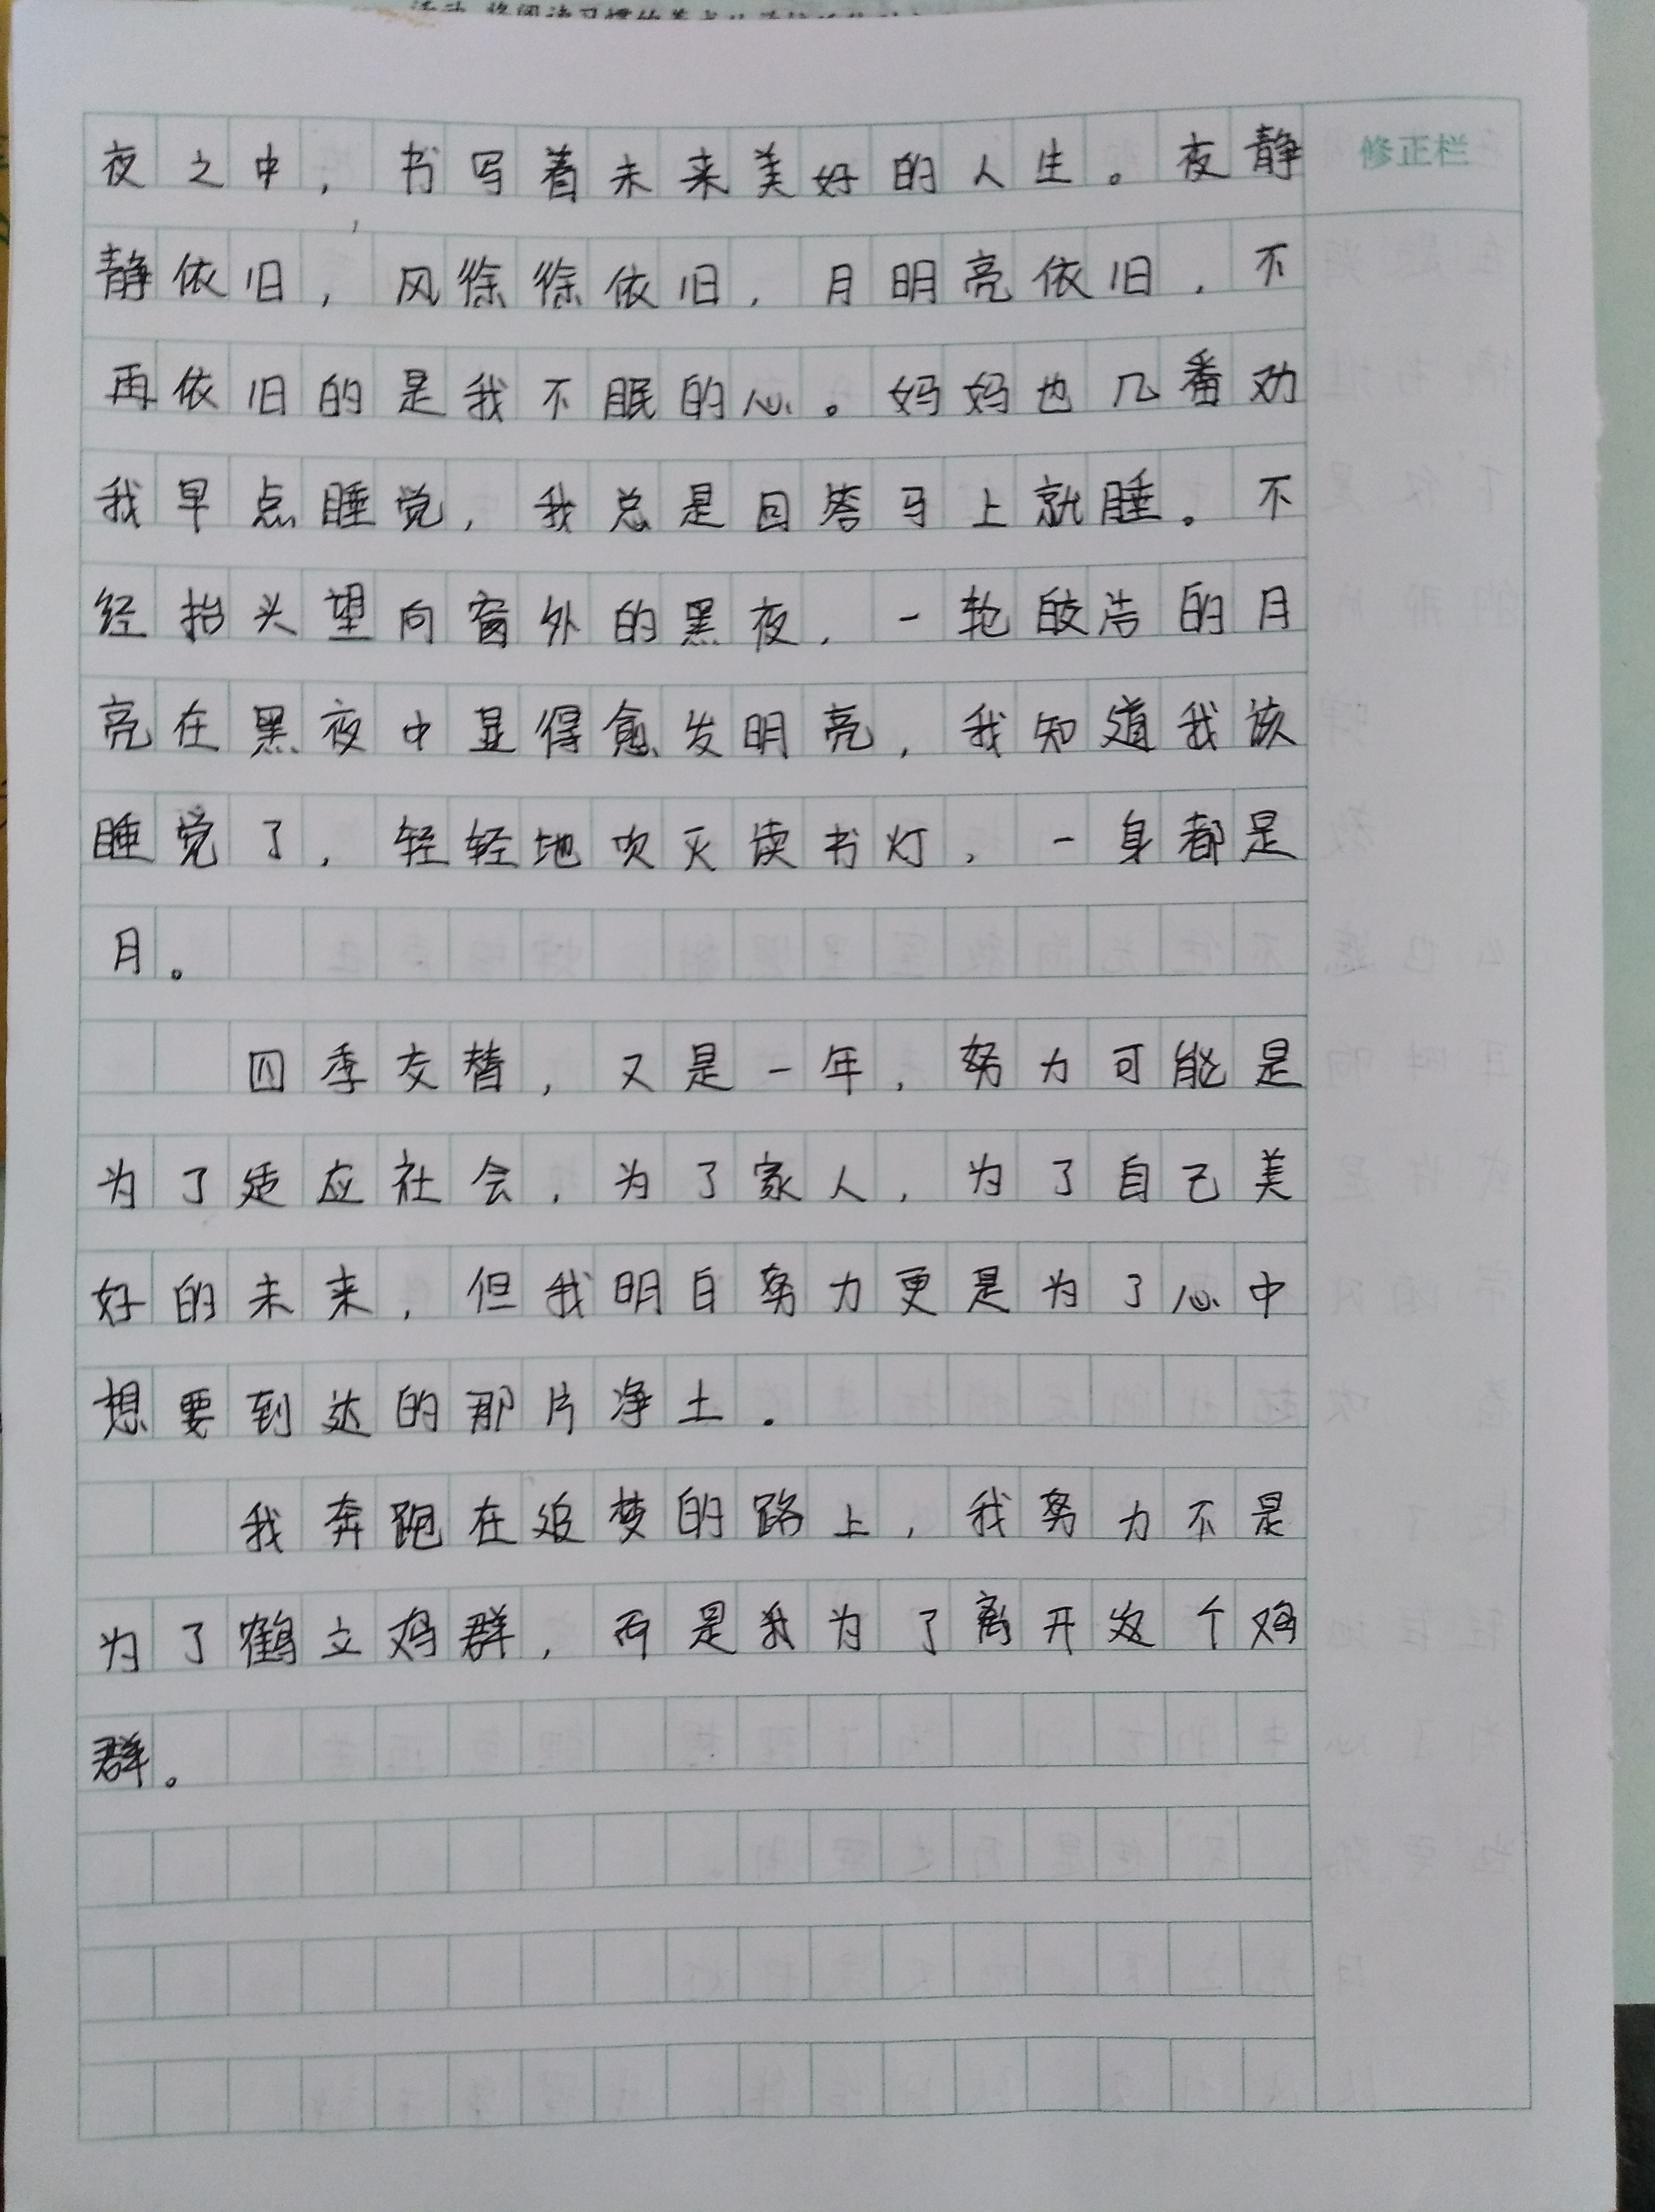 夜之中，书写着未来美好的人生。夜静
修正栏
静依旧，风徐徐依旧，月明亮依旧，不
再依旧的是我不眠的心。妈妈也几番劝
我早点睡觉，我总是回答马上就睡。不
经抬头望向窗外的黑夜，一轮皎洁的月
亮在黑夜中显得愈发明亮，我知道我该
睡觉了，轻轻地吹灭读书灯，一身都是
月。
四季交替，又是一年，努力可能是
为了适应社会，为了家人，为了自己美
好的未来，但我明白努力更是为了心中
想要到达的那片净土.
我奔跑在追梦的路上，我努力不是
为了鹤立鸡群，而是我为了离开这个鸡
群。